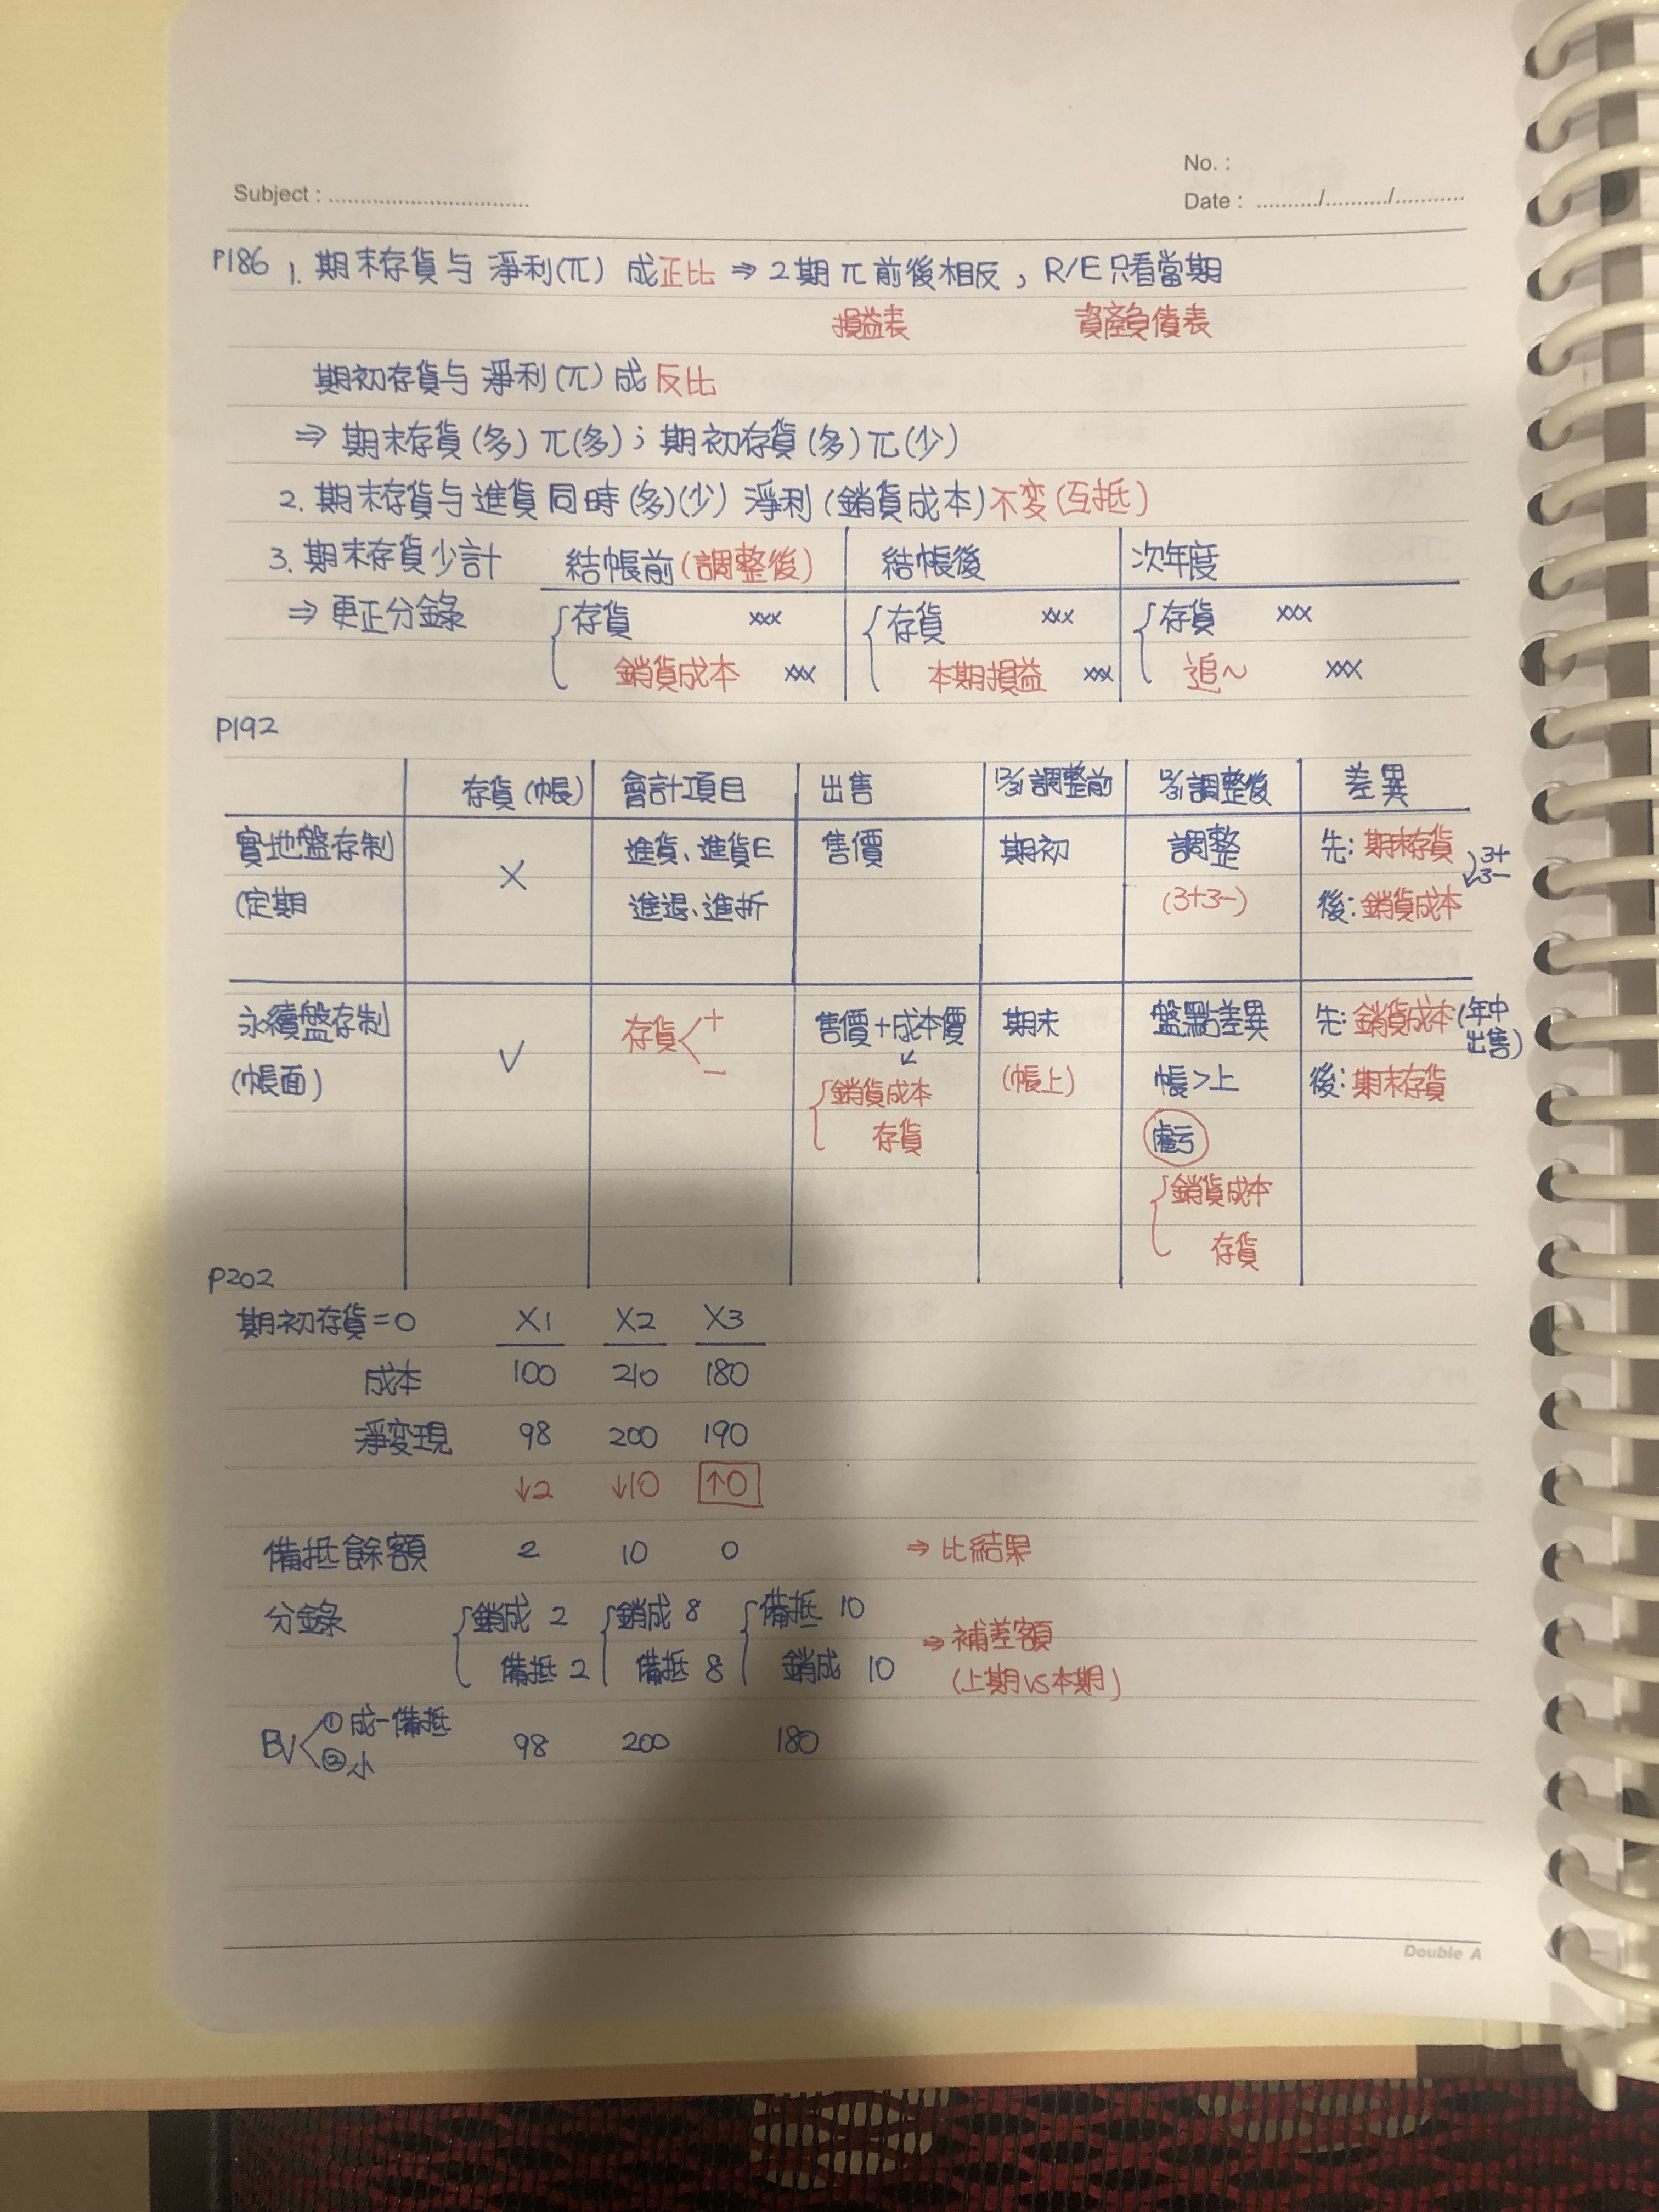 No. :
Subject : ................................
Date : ........../........../...........
P186 1. 期末存貨与 淨利(π) 成正比 ⇒ 2期π前後相反, R/E只看當期
損益表 資產負債表
期初存貨与淨利(π)成反比
⇒ 期末存貨(多) π(多); 期初存貨(多) π(少)
2. 期末存貨与進貨同時(多)(少) 淨利(銷貨成本)不変(互抵)
3. 期末存貨少計 結帳前(調整後) 結帳後 次年度
⇒ 更正分錄 存貨 xxx 存貨 xxx 存貨 xxx
銷貨成本 xxx 本期損益 xxx 追~ xxx
P192
存貨(帳) 會計項目 出售 12/31調整前 12/31調整後 差異
實地盤存制 X 進貨、進貨E 售價 期初 調整 先: 期末存貨 3+
3-
(定期 進退、進折 (3+3-) 後: 銷貨成本
永續盤存制 V 存貨 + 售價+成本價 期末 盤點差異 先: 銷貨成本(年中
出售)
(帳面) - 銷貨成本 (帳上) 帳>上 後: 期末存貨
存貨 虧
銷貨成本
存貨
P202
期初存貨=0 X1 X2 X3
成本 100 210 180
淨変現 98 200 190
↓2 ↓10 ↑0
備抵餘額 2 10 0 ⇒ 比結果
分錄 銷成 2 銷成 8 備抵 10
⇒ 補差額
備抵 2 備抵 8 銷成 10
(上期VS本期)
BV ①成-備抵 98 200 180
②小
Double A